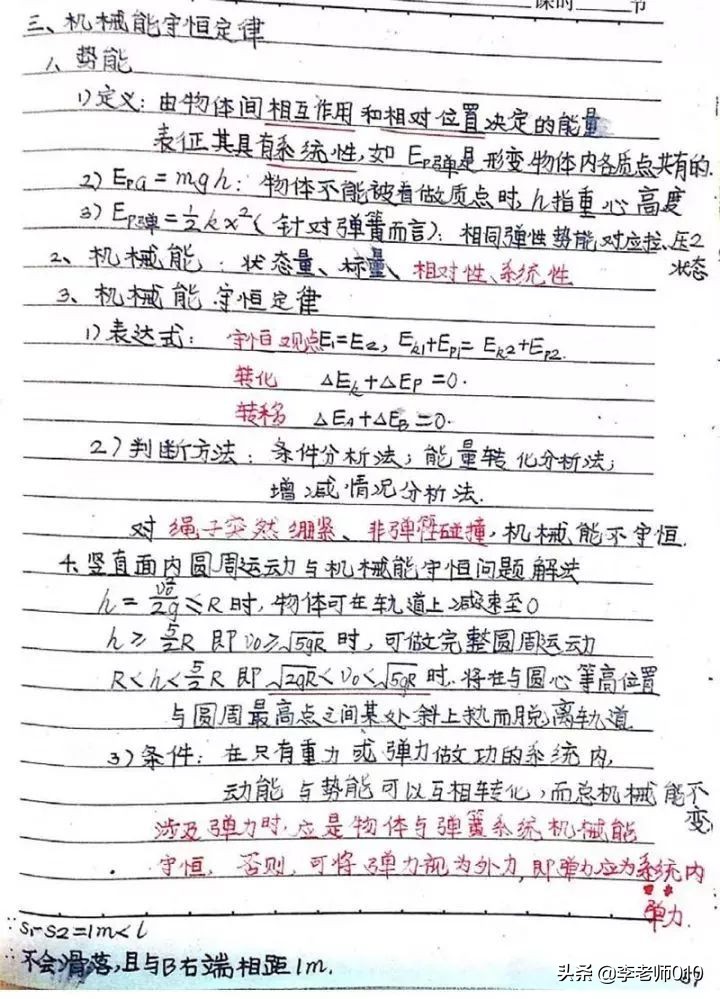 课时 节
三、机械能守恒定律
1、势能
1)定义：由物体间相互作用和相对位置决定的能量
表征其具有系统性,如 Ep弹是形变物体内各质点共有的.
2) EpG = mgh：物体不能被看做质点时,h指重心高度
3) Ep弹=½kx²(针对弹簧而言)：相同弹性势能对应拉、压2
状态
2、机械能：状态量、标量、相对性、系统性
3、机械能守恒定律
1)表达式：守恒观点E1=E2, Ek1+Ep1=Ek2+Ep2.
转化 ΔEk+ΔEp=0.
转移 ΔEA+ΔEB=0.
2)判断方法：条件分析法；能量转化分析法；
增减情况分析法.
对绳子突然绷紧、非弹性碰撞,机械能不守恒.
4.竖直面内圆周运动与机械能守恒问题解法
h=v0²/2g≤R时,物体可在轨道上减速至0
h≥5/2R 即v0≥√5gR 时,可做完整圆周运动
R<h<5/2R 即√2gR<v0<√5gR 时.将在与圆心等高位置
与圆周最高点之间某处斜上抛而脱离轨道
3)条件：在只有重力或弹力做功的系统内,
动能与势能可以互相转化,而总机械能不
变
涉及弹力时,应是物体与弹簧系统机械能
守恒,否则,可将弹力视为外力,即弹力应为系统内
弹力.
∵S1-S2=1m<l
∴不会滑落,且与B右端相距1m.
头条@李老师010